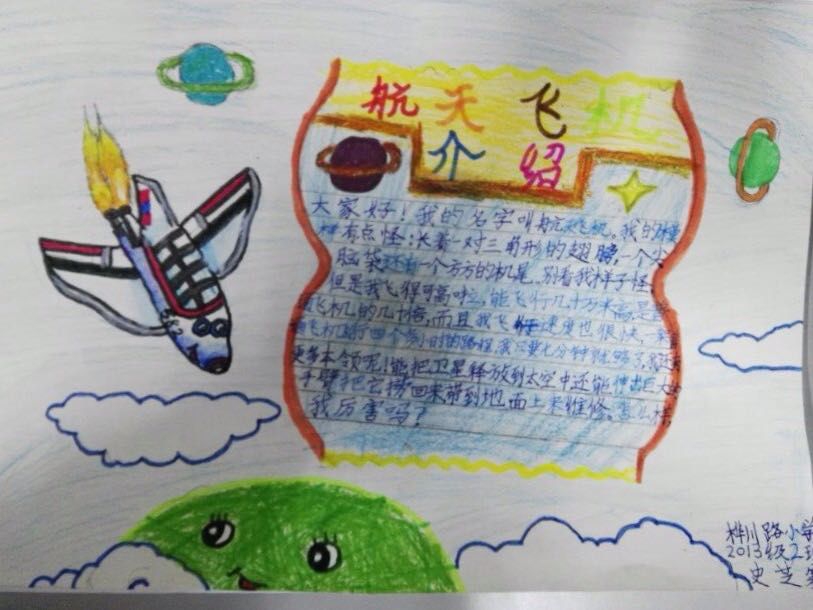 航天飞机
介绍
大家好！我的名字叫航天飞机。我的
有点怪：长着一对三角形的翅膀，一个尖
脑袋还有一个方方的机尾。别看我样子怪，
但是我飞得可高啦，能飞行几十万米高，是
飞机的几十倍，而且我飞行速度也很快，
飞机的四个多小时的路程，我只要七分钟就够了，我还有
更多本领呢！能把卫星释放到太空中还能伸出巨大的
手臂把它捞回来带到地面上来维修。怎么样，
我厉害吗？
桦川路小学
2013级2班
史芝